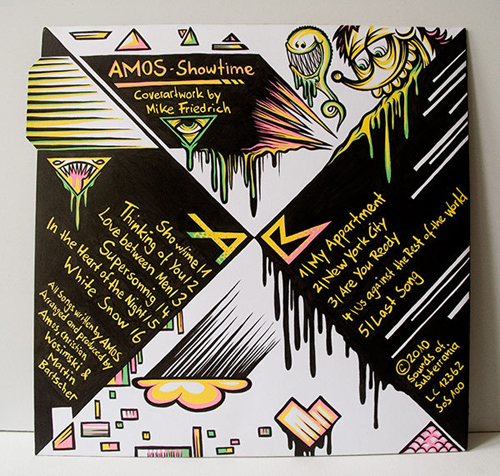 AMOS - Showtime
Coverartwork by
Mike Friedrich
A
Showtime /1
Thinking of You /2
Love between Men /3
Supersonnig /4
In the Heart of the Night /5
White Snow /6
All Songs written by AMOS
Arranged and produced by
Amos, Christian
Wosimski &
Martin
Bartscher
B
1/ My Appartment
2/ New York City
3/ Are You Ready
4/ Us against the Rest of the World
5/ Last Song
©2010
Sounds of
Subterrania
LC 12362
SoS 100